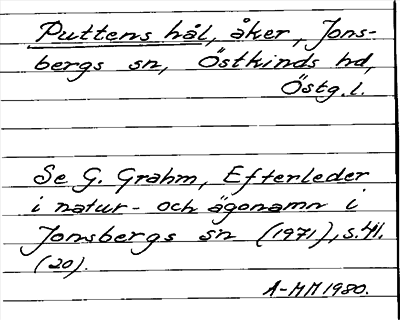 Puttens hål, åker, Jons-
bergs sn, Östkinds hd,
Östg.l.
Se G. Grahm, Efterleder
i natur- och ägonamn i
Jonsbergs sn (1971), s.41.
(20).
A-MM 1980.